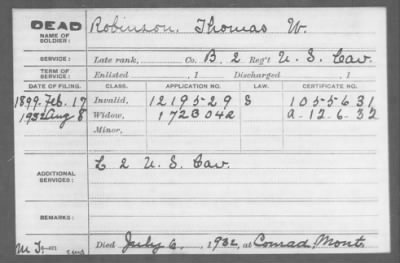 DEAD
NAME OF SOLDIER: Robinson, Thomas W.
SERVICE: Late rank, Co. B, 2 Reg't U. S. Cav.
TERM OF SERVICE: Enlisted , 1 Discharged , 1
DATE OF FILING. CLASS. APPLICATION NO. LAW. CERTIFICATE NO.
1899. Feb. 17 Invalid, 1219529 S 1055631
1932 Aug 8 Widow, 1723042 A-12-6-32
Minor,
ADDITIONAL SERVICES: L 2 U. S. Cav.
REMARKS:
Died July 6, 1932, at Conrad, Mont.